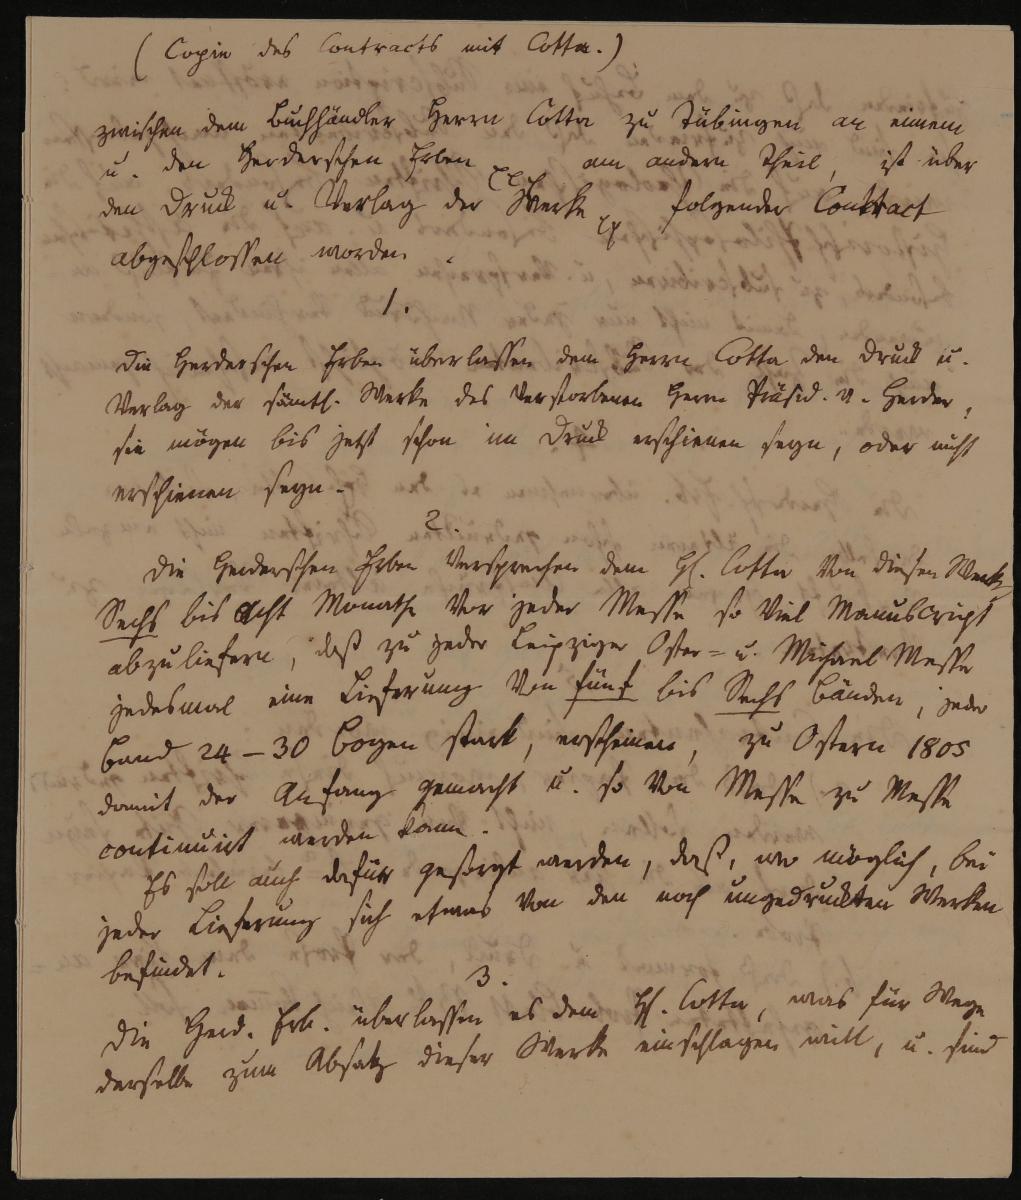 (Copie des Contracts mit Cotta.)
zwischen dem Buchhändler Herrn Cotta zu Tübingen an einem
u. den Herderschen Erben am andern Theil, ist über
den Druck u. Verlag der Werke folgender Contract
abgeschlossen worden.
1.
Die Herderschen Erben überlassen dem Herrn Cotta den Druck u.
Verlag der sämtl. Werke des verstorbenen Herrn Präsid. v. Herder,
sie mögen bis jetzt schon im Druck erschienen seyn, oder nicht
erschienen seyn.
2.
Die Herderschen Erben versprechen dem H. Cotta von diesen Werken
Sechs bis Acht Monathe vor jeder Messe so viel Manuscript
abzuliefern, daß zu jeder Leipziger Oster= u. Michael Messe
jedesmal eine Lieferung von fünf bis Sechs Bänden, jeder
Band 24 – 30 Bogen stark, erscheinen, zu Ostern 1805
damit der Anfang gemacht u. so von Messe zu Messe
continuirt werden kann.
Es soll auch dafür gesorgt werden, daß, wo möglich, bei
jeder Lieferung sich etwas von den noch ungedruckten Werken
befindet.
3.
Die Herd. Erb. überlassen es dem H. Cotta, was für Wege
derselbe zum Absatz dieser Werke einschlagen will, u. sind